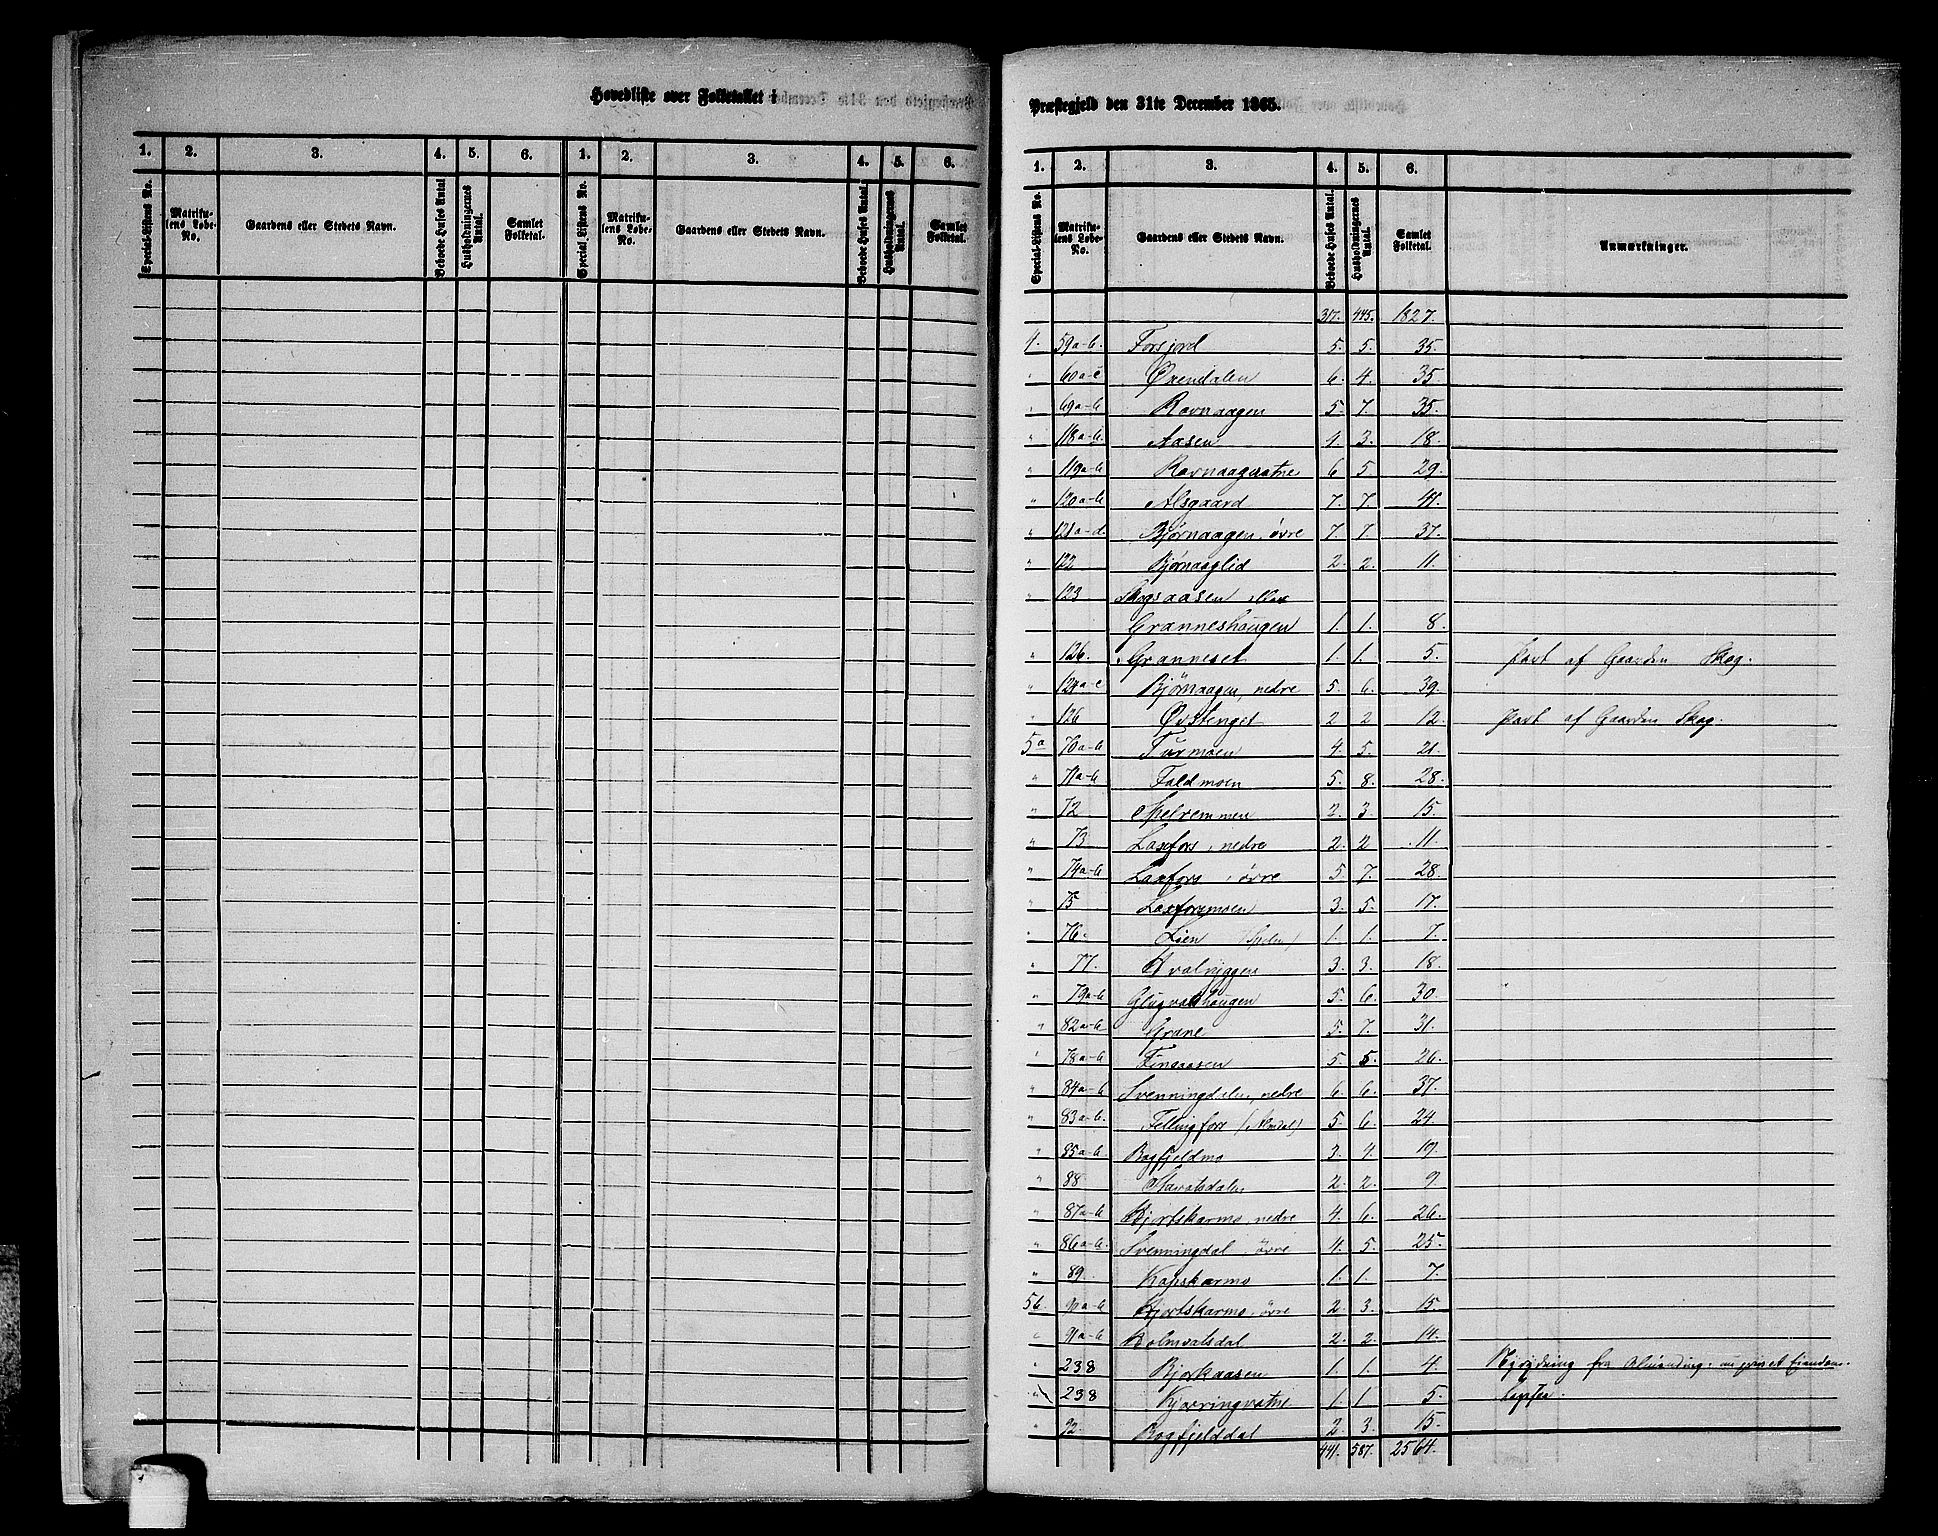 Hovedliste over Folketallet i
1. 2. 3. 4. 5. 6. 1. 2. 3. 4. 5. 6.
Special-Listens No. Matrikulens Løbe-No. Gaardens eller Stedets Navn. Beboede Huses Antal Husholdningernes Antal. Samlet Folketal. Special Listens No. Matrikulens Løbe-No. Gaardens eller Stedets Navn. Beboede Huses Antal. Husholdningernes Antal. Samlet Folketal.
Præstegjeld den 31te December 1865.
1. 2. 3. 4. 5. 6.
Special-Listens No. Matrikulens Løbe-No. Gaardens eller Stedets Navn. Beboede Huses Antal. Husholdningernes Antal. Samlet Folketal. Anmærkninger.
317. 445. 1827.
4. 59a-b. Forsjord 5. 5. 35.
" 60a-c Øxendalen 6. 4. 35.
" 69a-b Ravnaagen 5. 7. 35.
" 118a-b. Aasen 4. 3. 18.
" 119a-b Ravnaagvatne 6 5 29.
" 120a-b Alsgaard 7. 7. 41.
" 121a-d. Bjørnaagen, øvre 7. 7. 37.
" 122 Bjørnaaglid 2. 2. 11.
" 123 Skogsaasen eller
Granneshaugen 1. 1. 8.
" 126. Granneset 1. 1. 5. Part af Gaarden Skog.
" 124a-c Bjørnaagen, nedre 5. 6. 39.
" 126 Øvstenget 2 2 12. Part af Gaarden Skog.
5a 70a-b Turmoen 4. 5. 21.
" 71a-b Faldmoen 5. 8. 28.
" 72 Spelremmen 2. 3. 15.
" 73 Laxfors, nedre 2. 2 11.
" 74a-b Laxfors, øvre 5 7. 28.
" 75 Laxforsmoen 3. 5. 17.
" 76. Lien (Spelm) 1. 1. 7.
" 77. Hvalryggen 3. 3. 18.
" 79a-b Glugvashaugen 5. 6. 30.
" 82a-b Grane 5. 7. 31.
" 78a-b Finsaasen 5. 5. 26.
" 84a-b Svenningdalen, nedre 6. 6. 37.
" 83a-b. Fellingfors (Almdal) 5. 6. 24.
" 85a-b. Bogfjeldmo 3. 4. 19.
" 88 Stavatsdalen 2. 2. 9.
" 87a-b Hjortskarmo, nedre 4. 6. 26.
" 86a-b. Svenningdal, øvre 4. 5. 25.
" 89. Kapskarmo 1. 1. 7.
5b. 90a-b Hjortskarmo, øvre 2. 3. 15
" 91a-b Holmvatsdal 2. 2. 14.
" 238 Bjørkaasen 1. 1. 4. Nyrydning fra Alminding, nu privat Eiendom.
" 238 Kjærringvatne 1. 1 5.
" 92. Bogfjelddal 2. 3. 15.
441. 587. 2564.